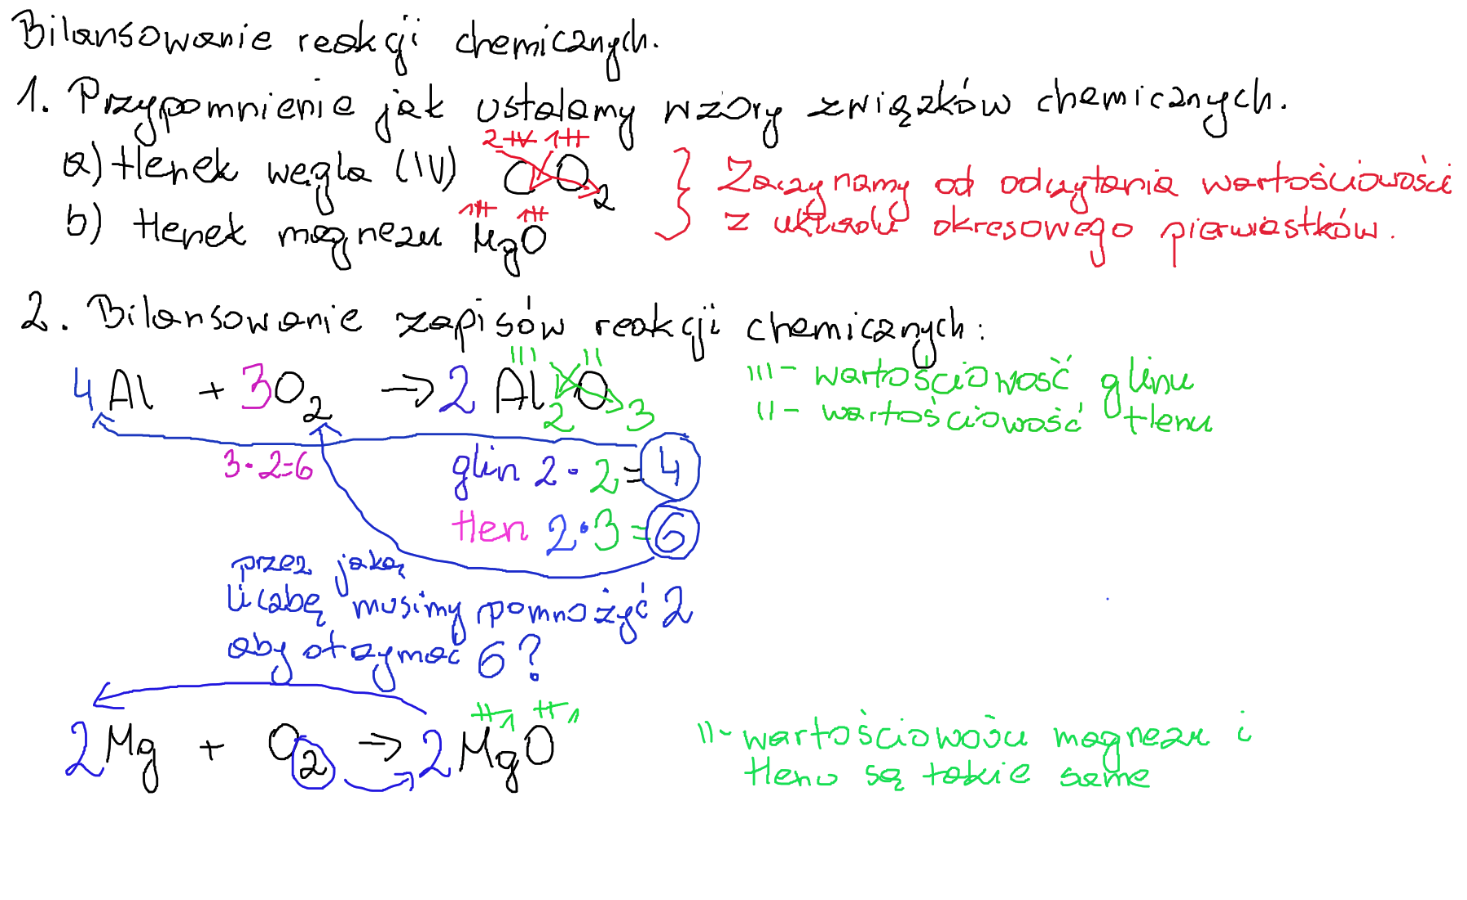 Bilansowanie reakcji chemicznych.
1. Przypomnienie jak ustalamy wzory związków chemicznych.
a) tlenek węgla (IV) CO₂
2 IV 1 II
} Zaczynamy od odczytania wartościowości
z układu okresowego pierwiastków.
b) tlenek magnezu MgO
1 II 1 II
2. Bilansowanie zapisów reakcji chemicznych:
III II
4Al + 3O₂ → 2Al₂O₃
III - wartościowość glinu
II - wartościowość tlenu
3·2=6
glin 2·2=4
tlen 2·3=6
przez jaką
liczbę musimy pomnożyć 2
aby otrzymać 6?
II 1 II 1
2Mg + O₂ → 2MgO
II - wartościowości magnezu i
tlenu są takie same